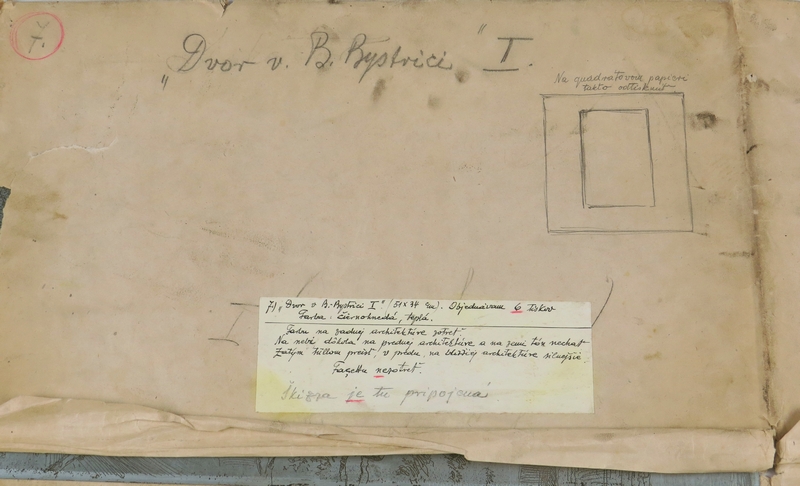 7.
„Dvor v. B. Bystrici" I.
Na quadrátovom papieri
takto odtisknuť
7.) „Dvor v B.-Bystrici I" (51 x 34 cm). Objednávam 6 tiskov
Farba: čiernohnedá, teplá.
Farbu na zadnej architektúre zotrieť.
Na nebi dohola, na prednej architektúre a na zemi tón nechať
Zatým tüllom prejsť, v predu, na bližšej architektúre silnejšie.
Facettu nezotrieť.
Škizza je tu pripojená